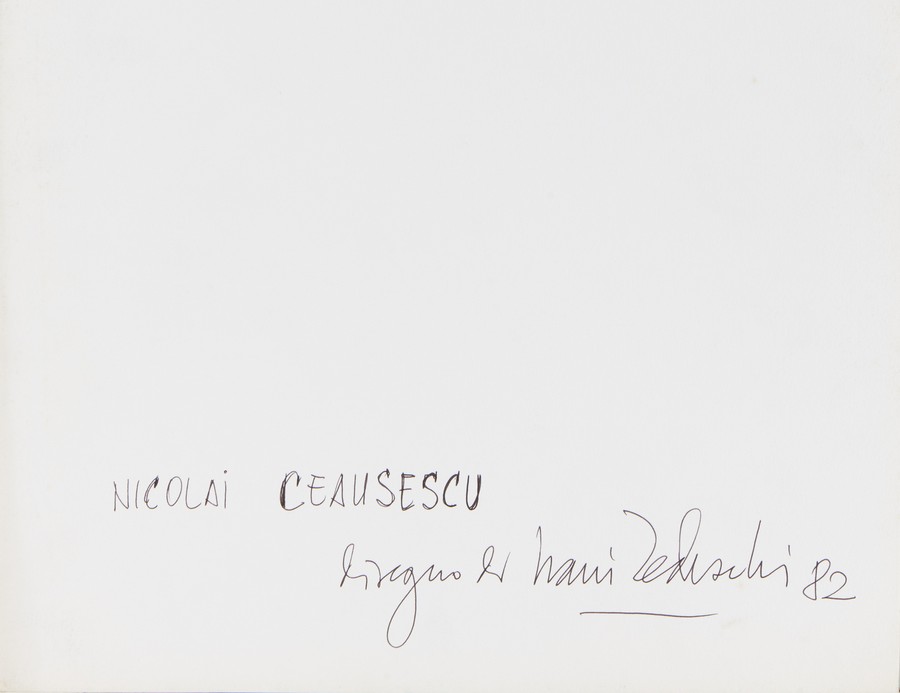 NICOLAi CEAUSESCU
disegno di Nani Tedeschi 82